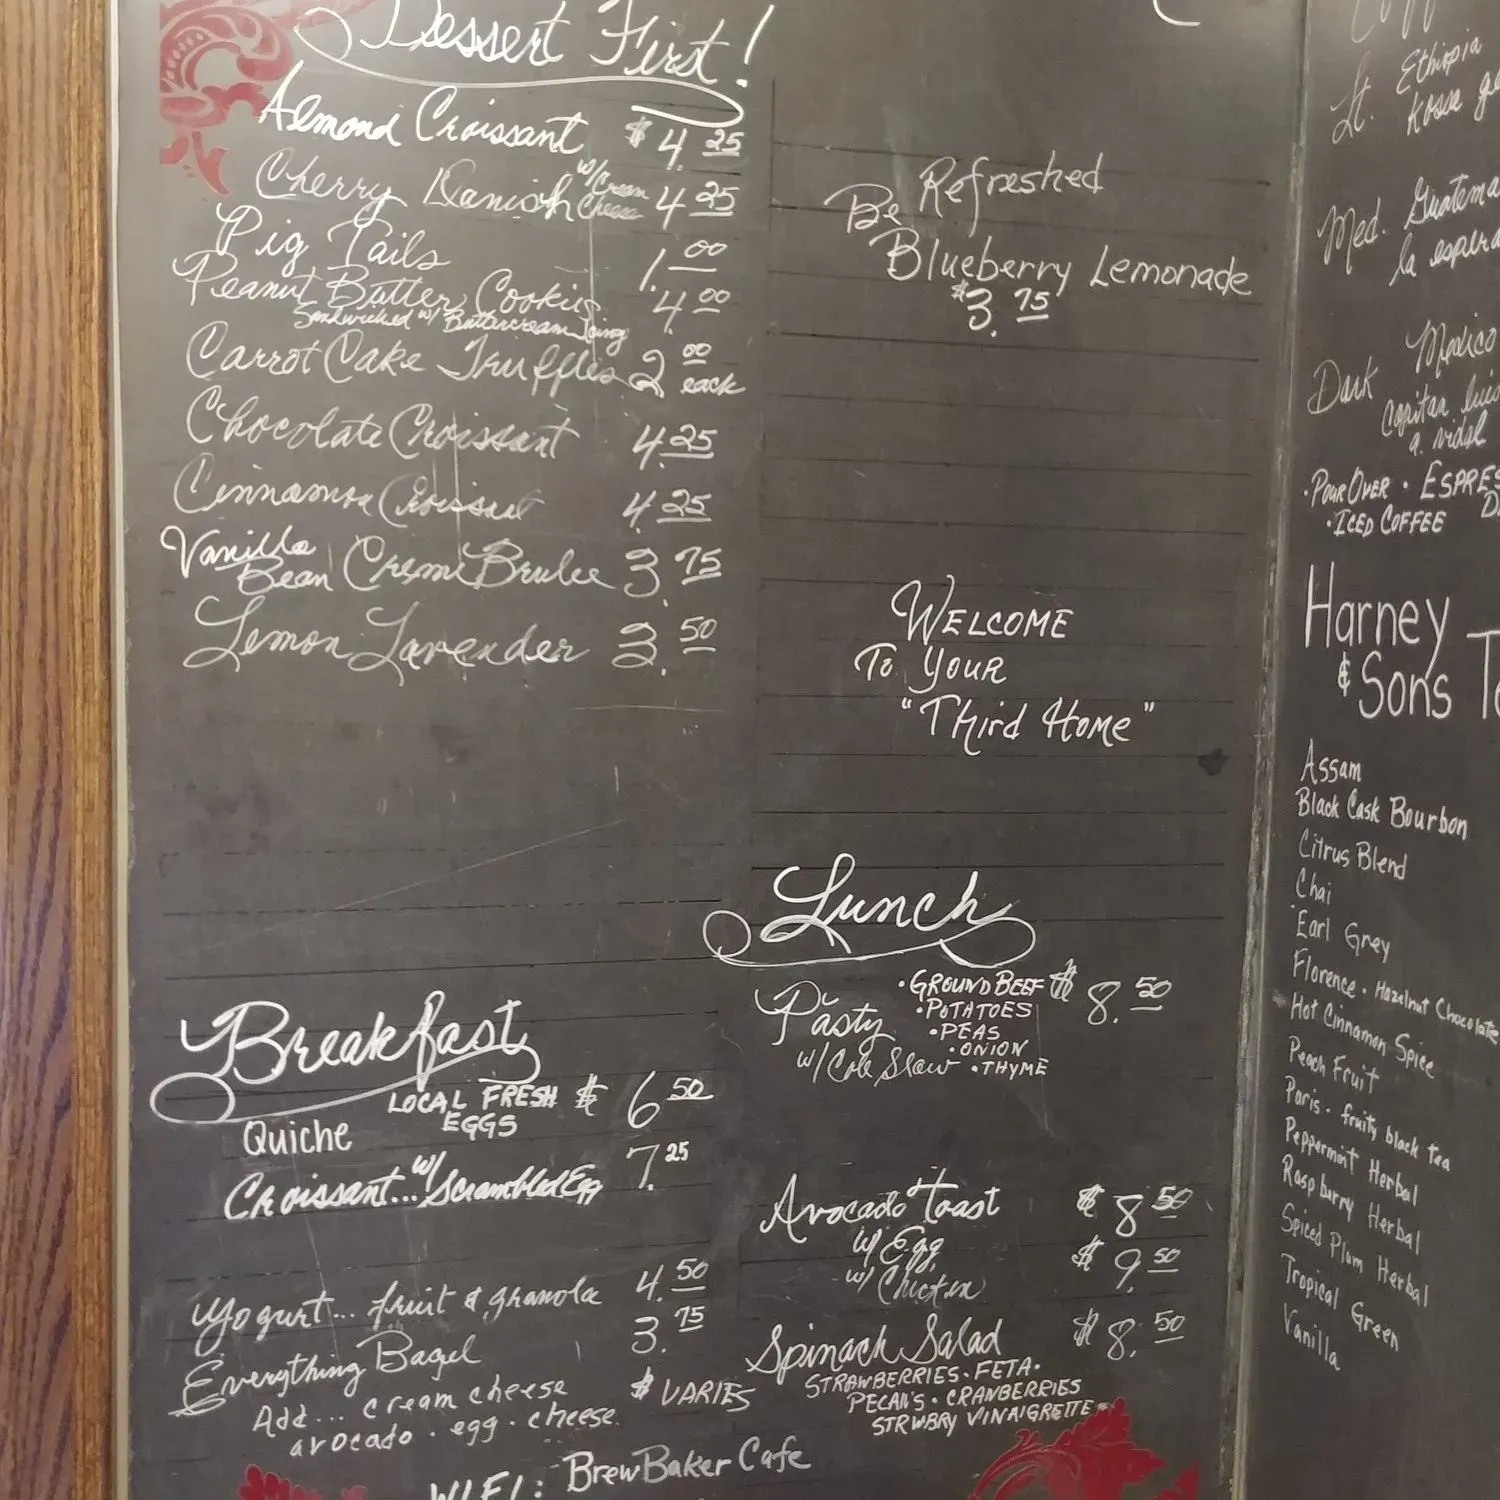 Dessert First!
Almond Croissant $4.25
Cherry Danish w/Cream Cheese 4.25
Pig Tails 1.00
Peanut Butter Cookies 4.00
Sandwiched w/ Buttercream Icing
Carrot Cake Truffles 2.00 each
Chocolate Croissant 4.25
Cinnamon Croissant 4.25
Vanilla Bean Creme Brulee 3.75
Lemon Lavender 3.50
Breakfast
LOCAL FRESH EGGS
Quiche $6.50
Croissant... w/ Scrambled Egg 7.25
Yogurt... fruit & granola 4.50
Everything Bagel 3.75
Add... cream cheese $ VARIES
avocado · egg · cheese
WIFI: BrewBaker Cafe
Be Refreshed
Blueberry Lemonade
$3.75
WELCOME
To YOUR
"Third Home"
Lunch
Pasty $8.50
w/ Cole Slaw
· GROUND BEEF
· POTATOES
· PEAS
· ONION
· THYME
Avocado Toast
w/ Egg $8.50
w/ Chicken $9.50
Spinach Salad $8.50
STRAWBERRIES · FETA ·
PECAN'S · CRANBERRIES
STRWBRY VINAIGRETTE
Lt. Ethiopia
Med.
Dark Mexico
· POUR OVER ·
· ICED COFFEE
Harney
& Sons
Assam
Black Cask Bourbon
Citrus Blend
Chai
Earl Grey
Florence - Hazelnut Chocolate
Hot Cinnamon Spice
Peach Fruit
Paris - fruity black tea
Peppermint Herbal
Raspberry Herbal
Spiced Plum Herbal
Tropical Green
Vanilla